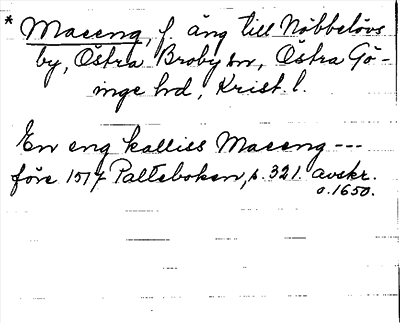 * Maceng, f. äng till Nöbbelövs
by, Östra Broby sn, Östra Gö-
inge hd, Krist. l.
En eng kalliss Maceng ---
före 1517 Palteboken, s. 321. avskr.
o. 1650.